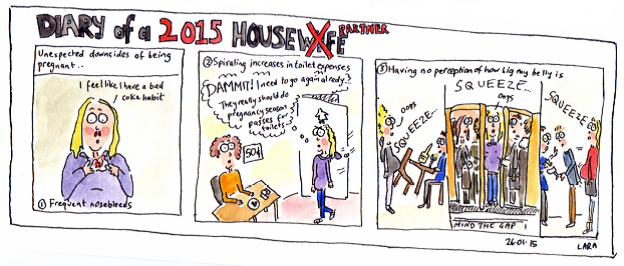 DIARY of a 2015 HOUSEWIFE PARTNER
Unexpected downsides of being
pregnant..
I feel like I have a bad
coke habit
① Frequent nosebleeds
② Spiralling increases in toilet expenses
DAMMIT! I need to go again already.
They really should do
pregnancy season
passes for
toilets..
50¢
③ Having no perception of how big my belly is
OOPS
SQUEEZE...
SQUEEZE...
OOPS
SQUEEZE...
MIND THE GAP
26·01·15
LARA